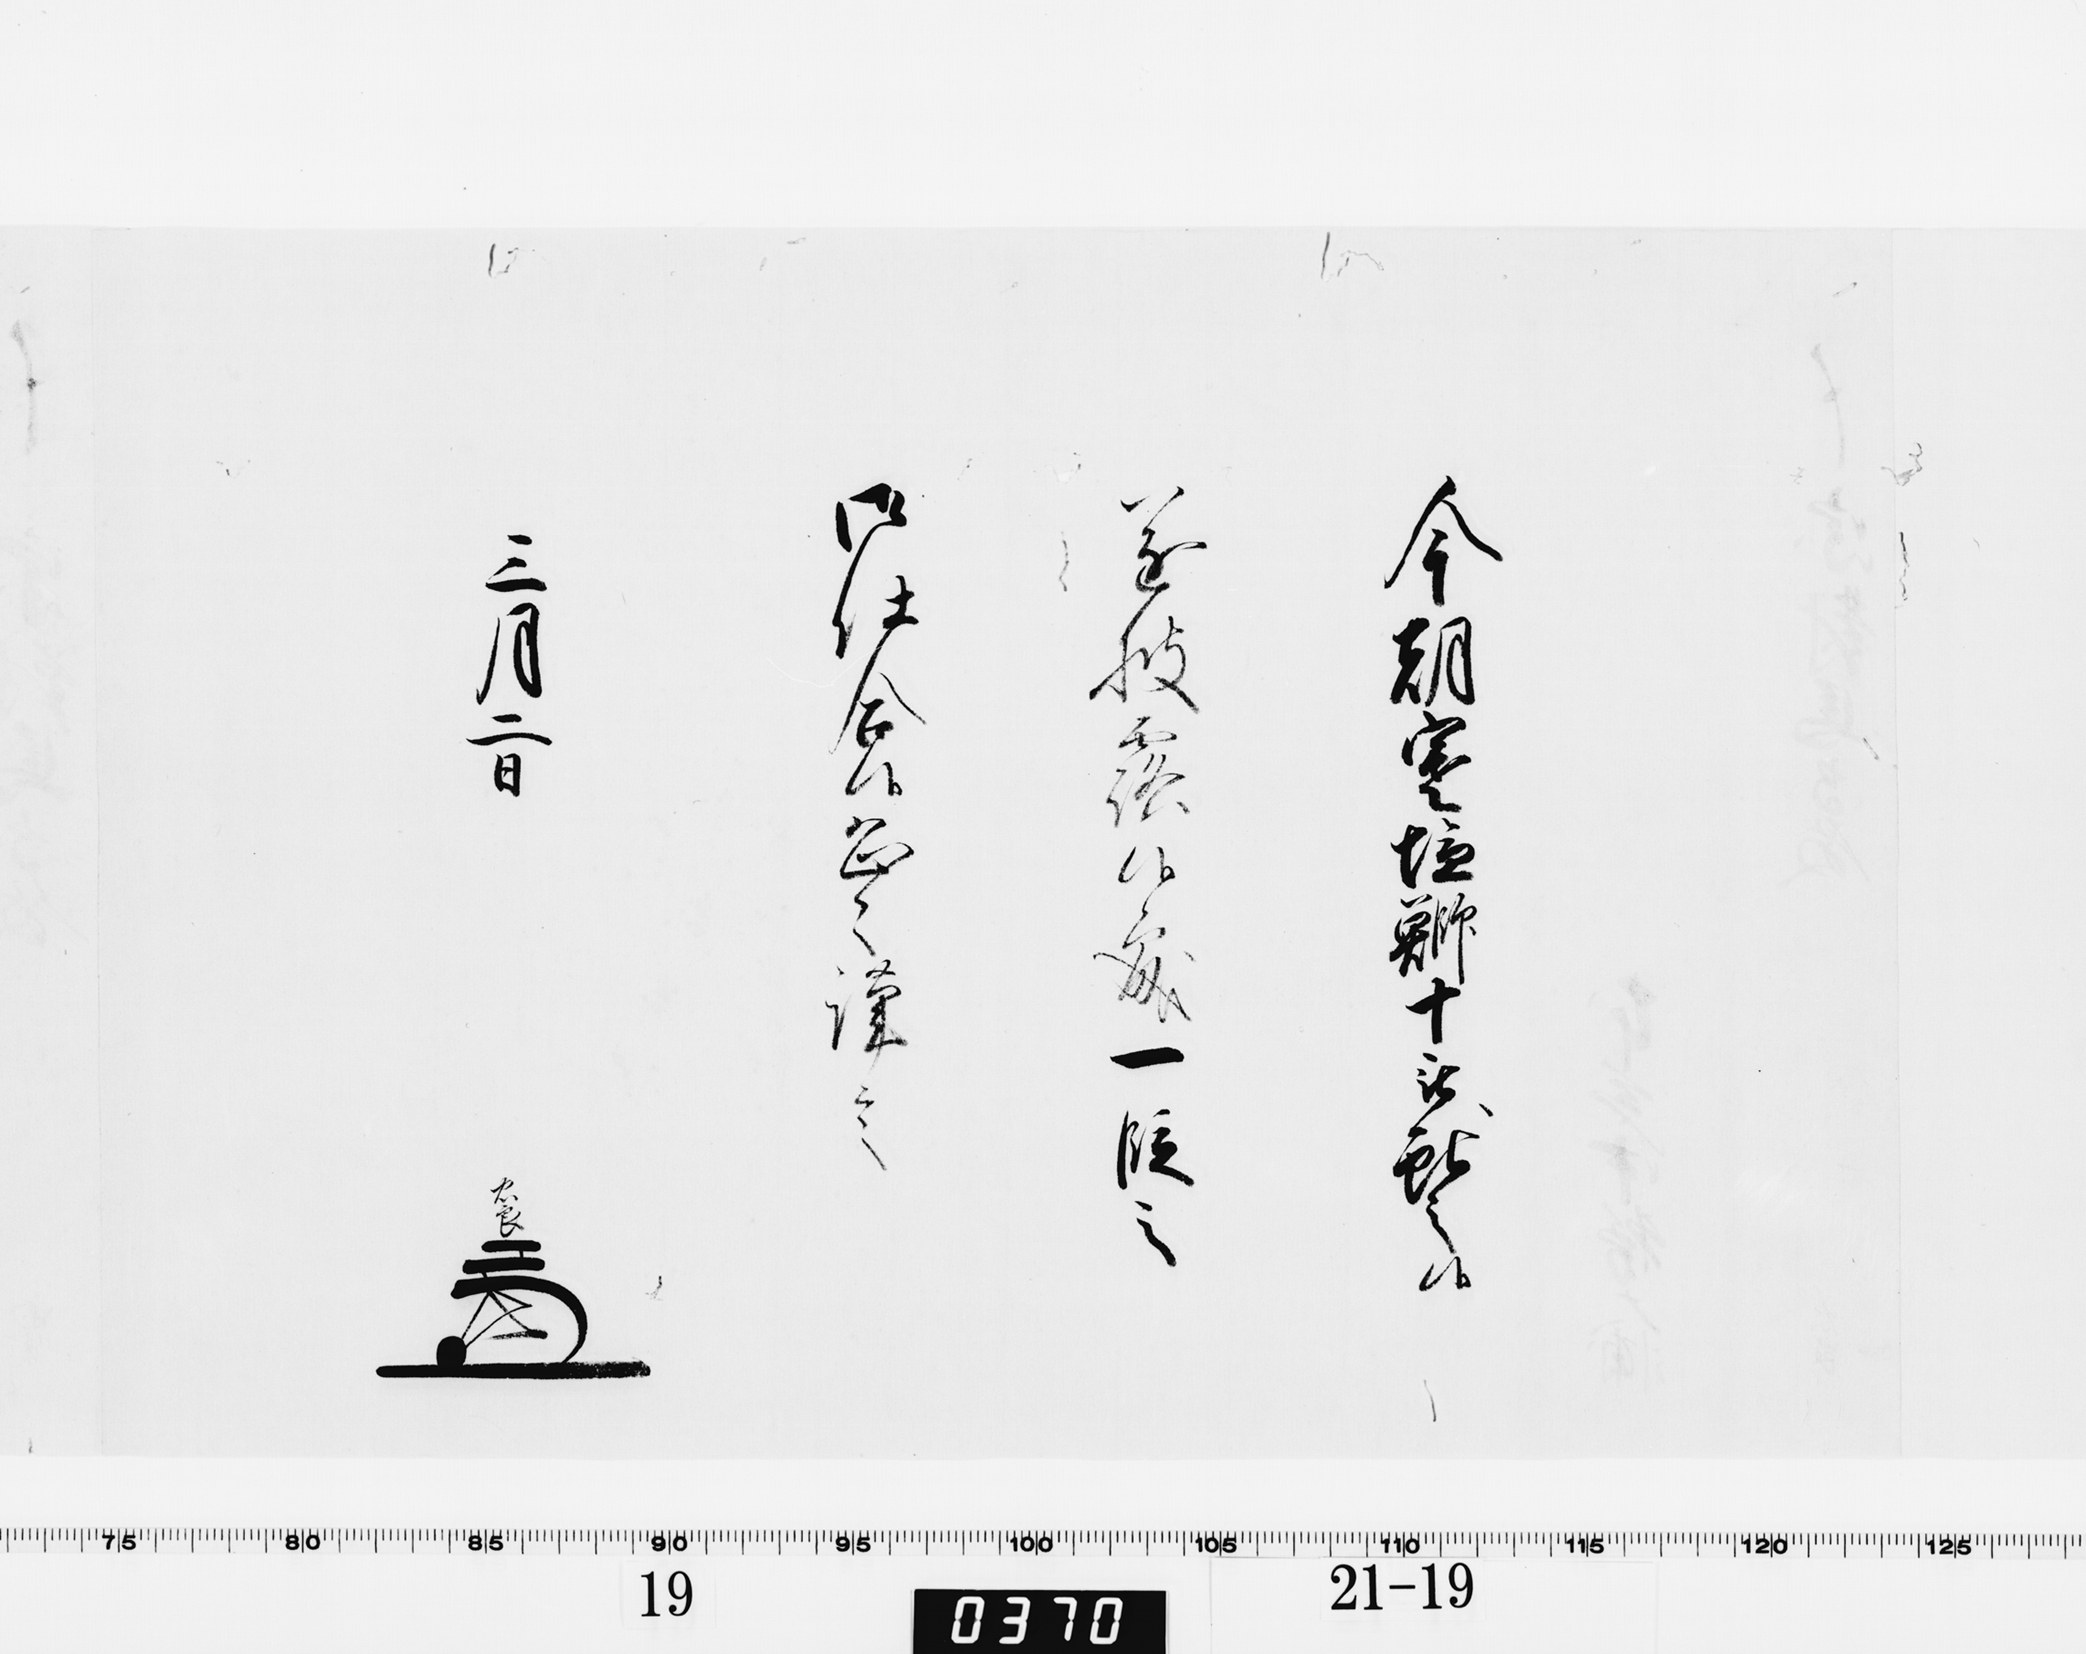 今朝寒塩鰤十被献之候
遂披露候処一段之
御仕合候恐々謹言
三月二日
75 80 85 90 95 100 105 110 115 120 125
19
0370
21-19